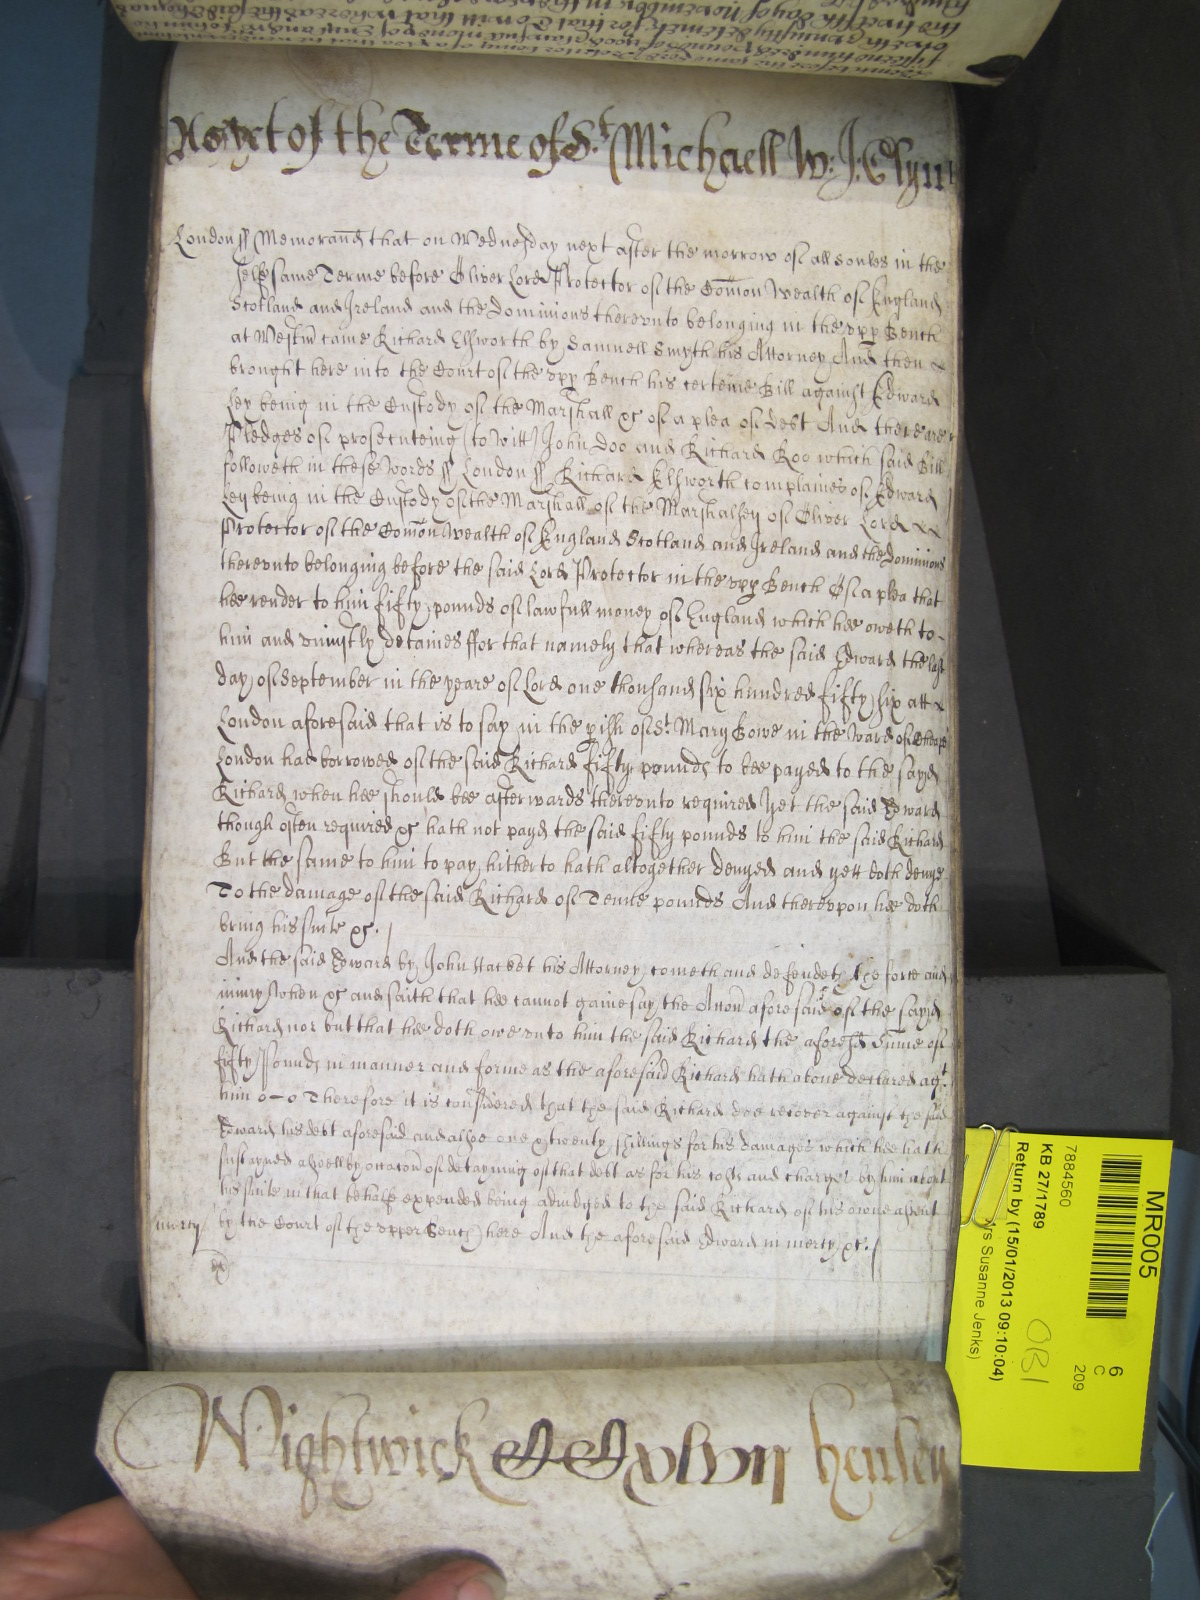 yet of the Terme of St. Michaell W: J: Glyn
London ss Memorand that on Wednesday next after the morrow of all soules in the
selfe same Terme before Oliver Lord Protector of the Comon Wealth of England
Scotland and Ireland and the Dominions therevnto belonging in the vpp Bench
at Westm came Richard Elsworth by Samuell Smyth his Attorney And then
brought here into the Court of the vpp Bench his certeine Bill against Edward
Ley being in the Custody of the Marshall &c of a plea of Debt And there are
Pledges of prosecuteing (to witt) John Doo and Richard Roo which said Bill
followeth in these words ss London ss Richard Elsworth complaines of Edward
Ley being in the Custody of the Marshall of the Marshalsey of Oliver Lord
Protector of the Comon Wealth of England Scotland and Ireland and the Dominions
therevnto belonging before the said Lord Protector in the vpp Bench Of a plea that
hee render to him fifty pounds of lawfull money of England which hee oweth to
him and vniustly detaines ffor that namely that whereas the said Edward the last
day of September in the yeare of Lord one thousand six hundred fifty six att
London aforesaid that is to say in the pish of St. Mary Bowe in the Ward of Cheape
London had borrowed of the said Richard fifty pounds to bee payed to the sayd
Richard when hee should bee afterwards therevnto required Yet the said Edward
though often required &c hath not payd the said fifty pounds to him the said Richard
But the same to him to pay hitherto hath altogether denyed and yett doth denye
To the damage of the said Richard of Tenne pounds And therevpon hee doth
bring his suite &c.
And the said Edward by John Hacket his Attorney cometh and defendeth the force and
iniury when &c and saith that hee cannot gainesay the Accon aforesaid of the sayd
Richard nor but that hee doth owe vnto him the said Richard the aforesd Sume of
fifty Pounds in manner and forme as the aforesaid Richard hath aboue declared agt.
him Therefore it is considered that the said Richard doe recover against the said
Edward his debt aforesaid and alsoe one & twenty shillings for his damages which hee hath
susteyned aswell by occacon of detayning of that debt as for his costs and charges by him about
his suite in that behalfe expended being adiudged to the said Richard of his owne assent
mercy by the Court of the vpper Bench here And the aforesaid Edward in mercy &c.
Wightwick
MR005
6
C
209
7884560
KB 27/1789
Return by (15/01/2013 09:10:04)
Susanne Jenks)
OB1